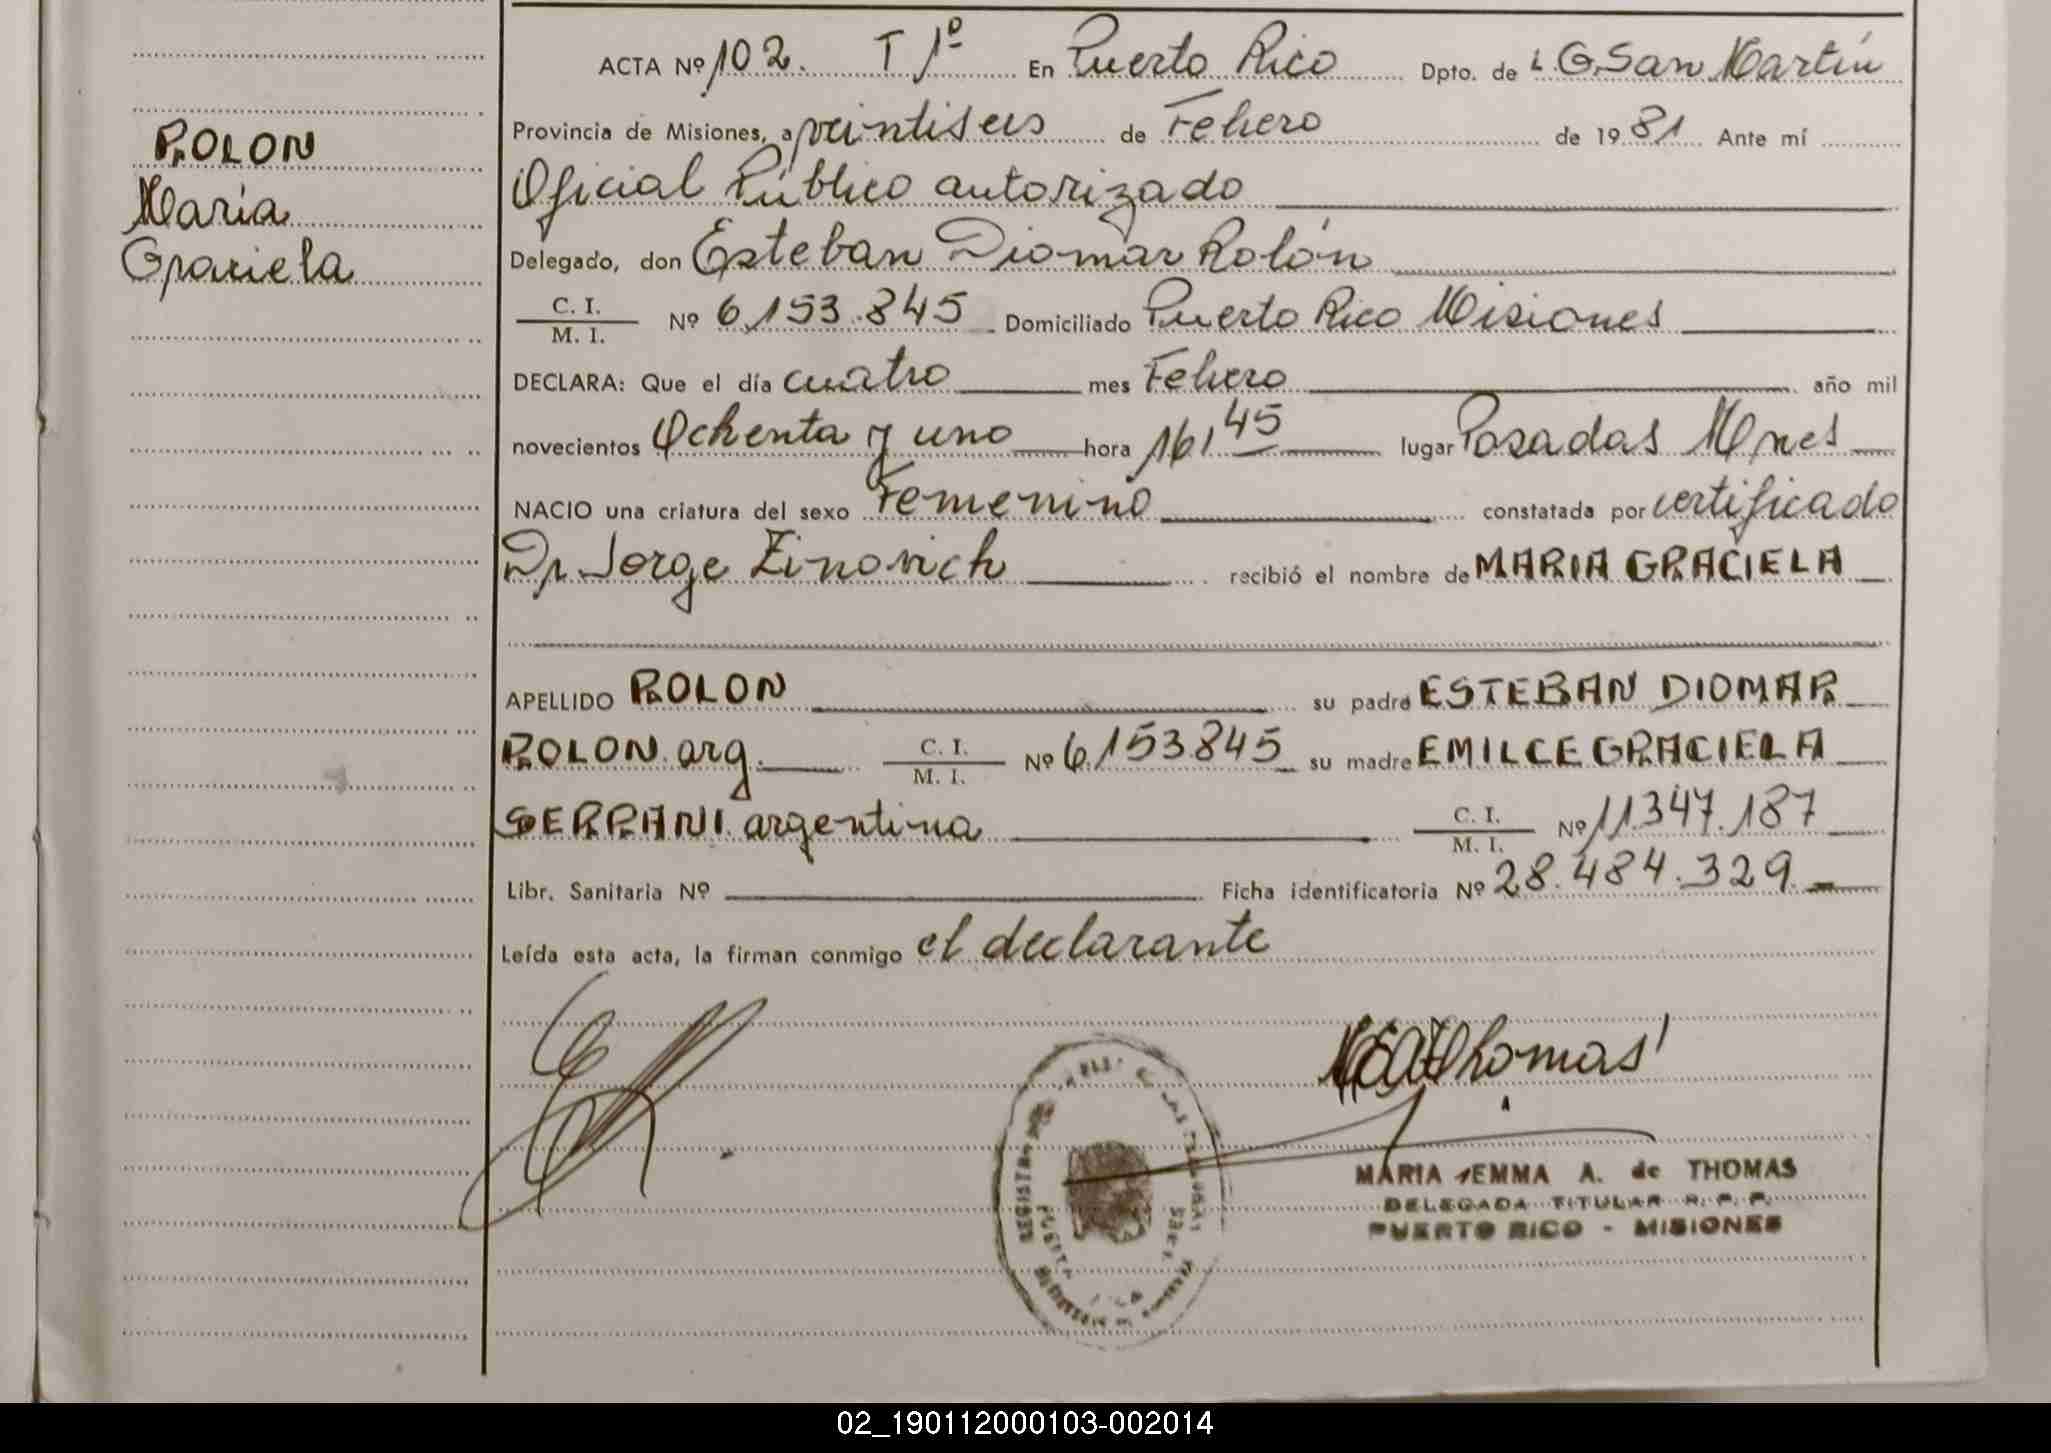 ROLON
María
Graciela
ACTA Nº 102. T 1º En Puerto Rico Dpto. de L G. San Martín
Provincia de Misiones, a veintiseis de Febrero de 1981 Ante mí
Oficial Público autorizado
Delegado, don Esteban Diomar Rolón
C. I.
M. I. Nº 6.153.845 Domiciliado Puerto Rico Misiones
DECLARA: Que el día cuatro mes Febrero año mil
novecientos Ochenta y uno hora 16,45 lugar Posadas Mnes
NACIO una criatura del sexo Femenino constatada por certificado
Dr. Jorge Zinovich recibió el nombre de MARIA GRACIELA
APELLIDO ROLON su padre ESTEBAN DIOMAR
ROLON arg. C. I.
M. I. Nº 6.153.845 su madre EMILCE GRACIELA
SERRANI argentina C. I.
M. I. Nº 11.347.187
Libr. Sanitaria Nº Ficha identificatoria Nº 28.484.329
Leída esta acta, la firman conmigo el declarante
Thomas
MARIA EMMA A. de THOMAS
DELEGADA TITULAR R. P. P.
PUERTO RICO - MISIONES
02_190112000103-002014